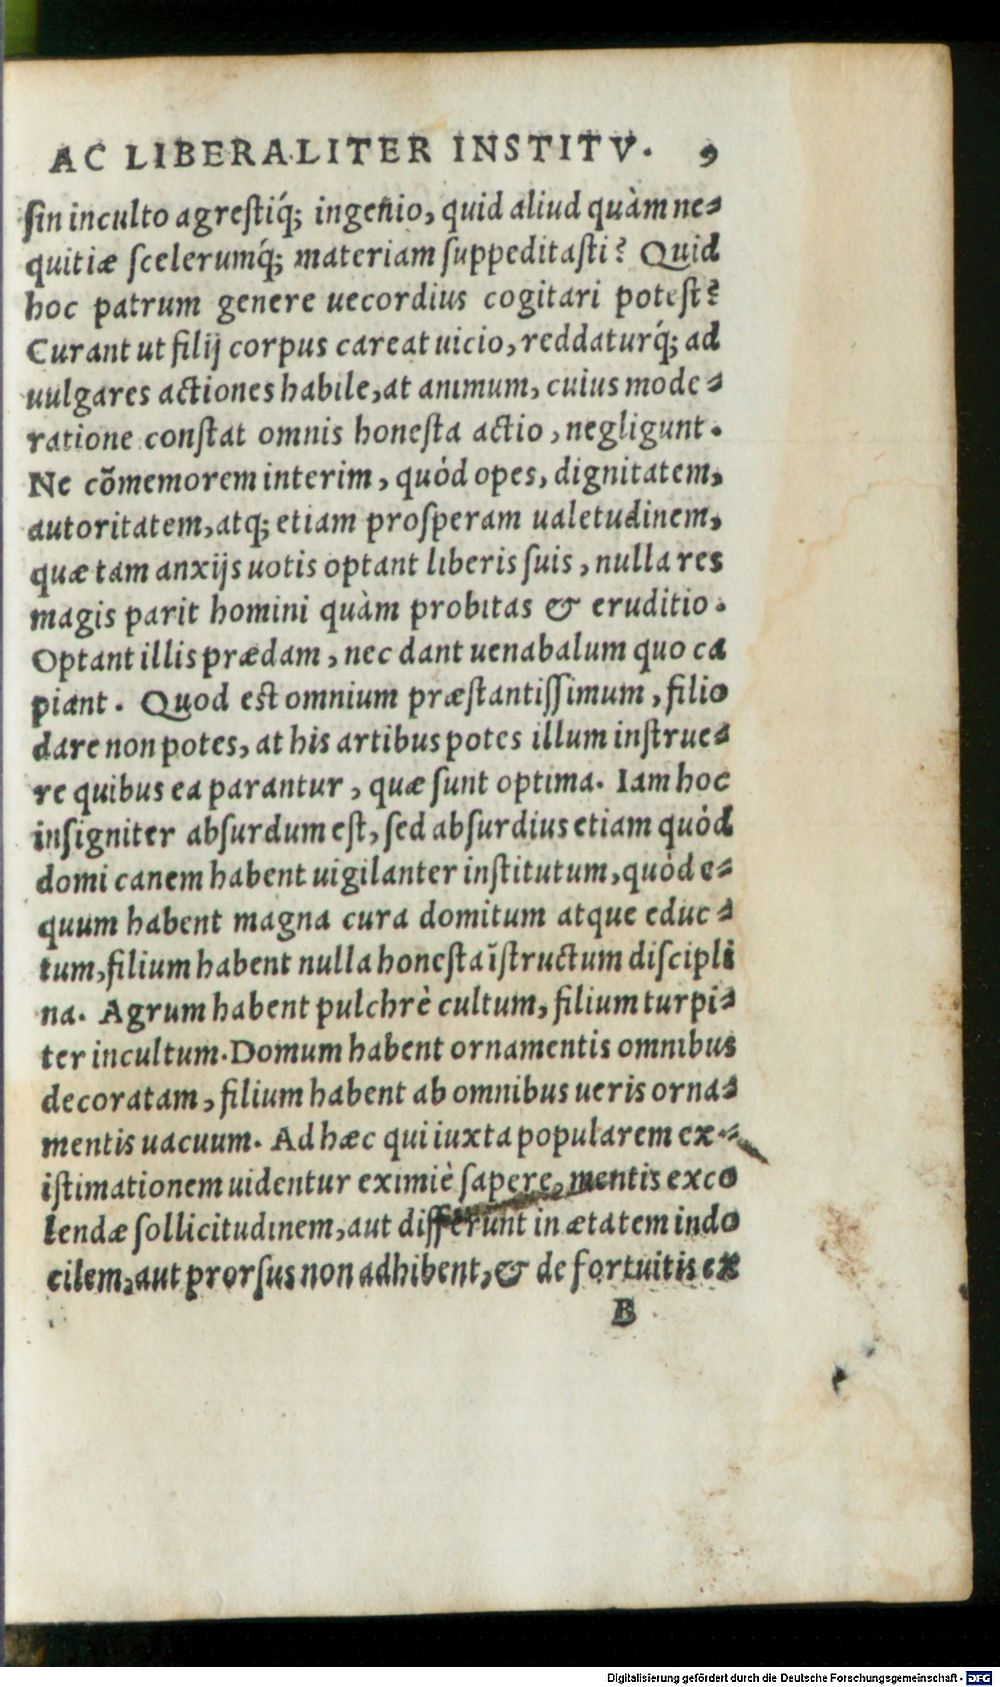 AC LIBERALITER INSTITV. 9
sin inculto agrestiq́; ingenio, quid aliud quàm ne-
quitiæ scelerumq́; materiam suppeditasti? Quid
hoc patrum genere uecordius cogitari potest?
Curant ut filij corpus careat uicio, reddaturq́; ad
uulgares actiones habile, at animum, cuius mode-
ratione constat omnis honesta actio, negligunt.
Ne cõmemorem interim, quód opes, dignitatem,
autoritatem, atq; etiam prosperam ualetudinem,
quæ tam anxijs uotis optant liberis suis, nulla res
magis parit homini quàm probitas & eruditio.
Optant illis prædam, nec dant uenabalum quo ca
piant. Quod est omnium præstantissimum, filio
dare non potes, at his artibus potes illum instrue-
re quibus ea parantur, quæ sunt optima. Iam hoc
insigniter absurdum est, sed absurdius etiam quód
domi canem habent uigilanter institutum, quód e-
quum habent magna cura domitum atque educ-
tum, filium habent nulla honesta ĩstructum discipli
na. Agrum habent pulchrè cultum, filium turpi-
ter incultum. Domum habent ornamentis omnibus
decoratam, filium habent ab omnibus ueris orna-
mentis uacuum. Ad hæc qui iuxta popularem ex-
istimationem uidentur eximiè sapere, mentis exco
lendæ sollicitudinem, aut differunt in ætatem indo
cilem, aut prorsus non adhibent, & de fortuitis ex
B
Digitalisierung gefördert durch die Deutsche Forschungsgemeinschaft - DFG